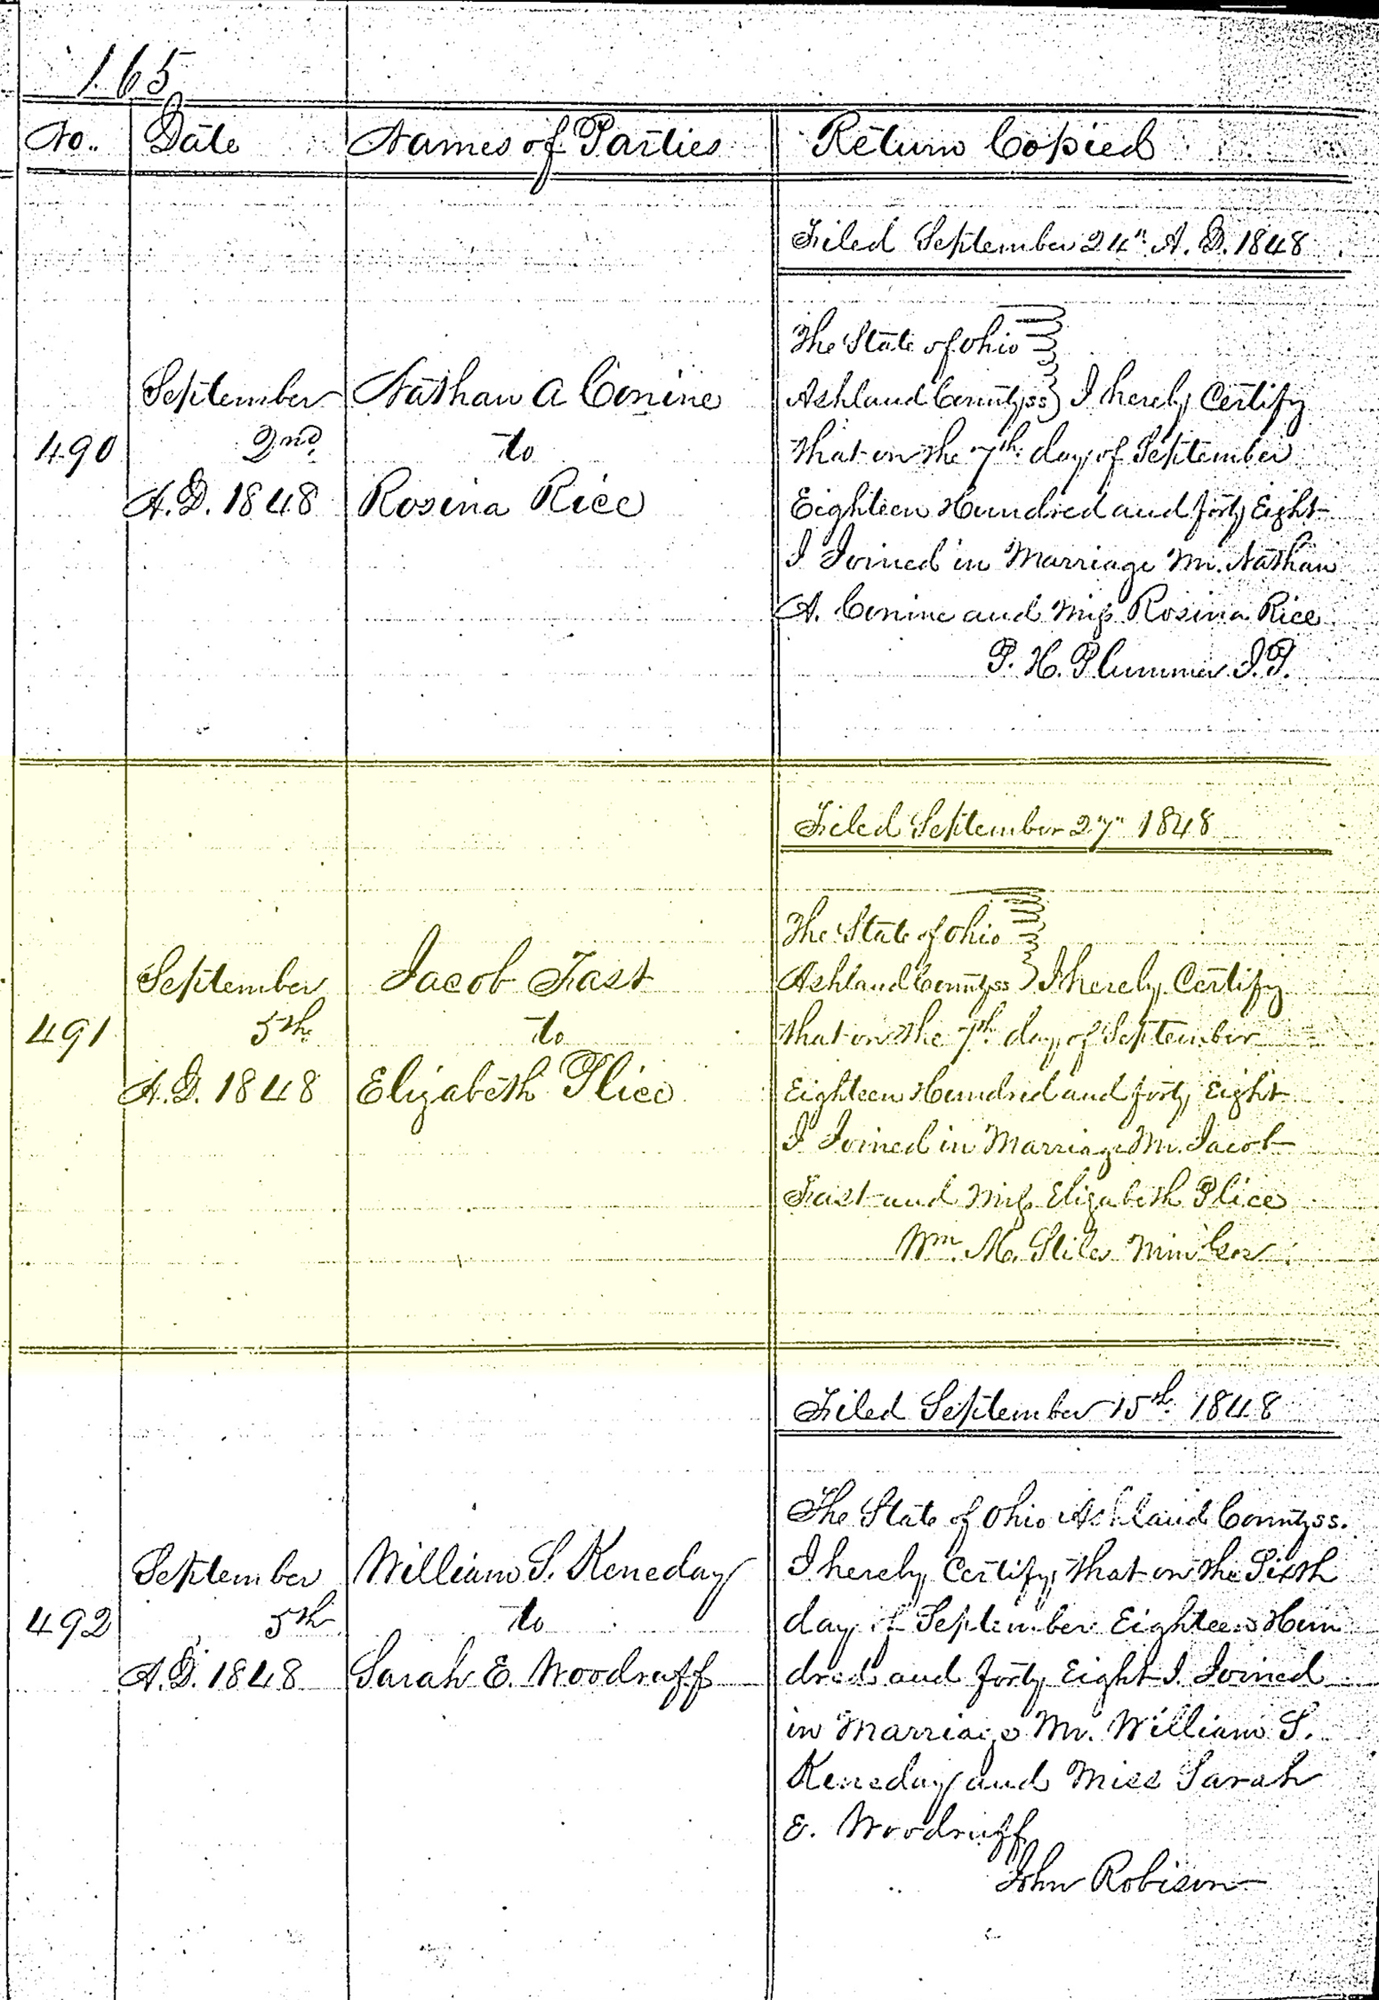 165
No. Date Names of Parties Return Copied
Filed September 24" A. D. 1848
490
September
2nd
A. D. 1848
Nathan A Conine
to
Rosina Rice
The State of Ohio
Ashland County ss } I hereby Certify
that on the 7th day of September
Eighteen Hundred and forty Eight
I Joined in Marriage Mr. Nathan
A. Conine and Miss Rosina Rice
P. H. Plummer J. P.
Filed September 27" 1848
491
September
5th
A. D. 1848
Jacob Fast
to
Elizabeth Plice
The State of Ohio
Ashland County ss } I hereby Certify
that on the 7th day of September
Eighteen Hundred and forty Eight
I Joined in Marriage Mr. Jacob
Fast and Miss Elizabeth Plice
Wm. M.
Filed September 15th 1848
492
September
5th
A. D. 1848
William S. Keneday
to
Sarah E. Woodruff
The State of Ohio Ashland County ss.
I hereby Certify that on the Sixth
day of September Eighteen Hun
dred and forty Eight I Joined
in Marriage Mr. William S.
Keneday and Miss Sarah
E. Woodruff
John Robison